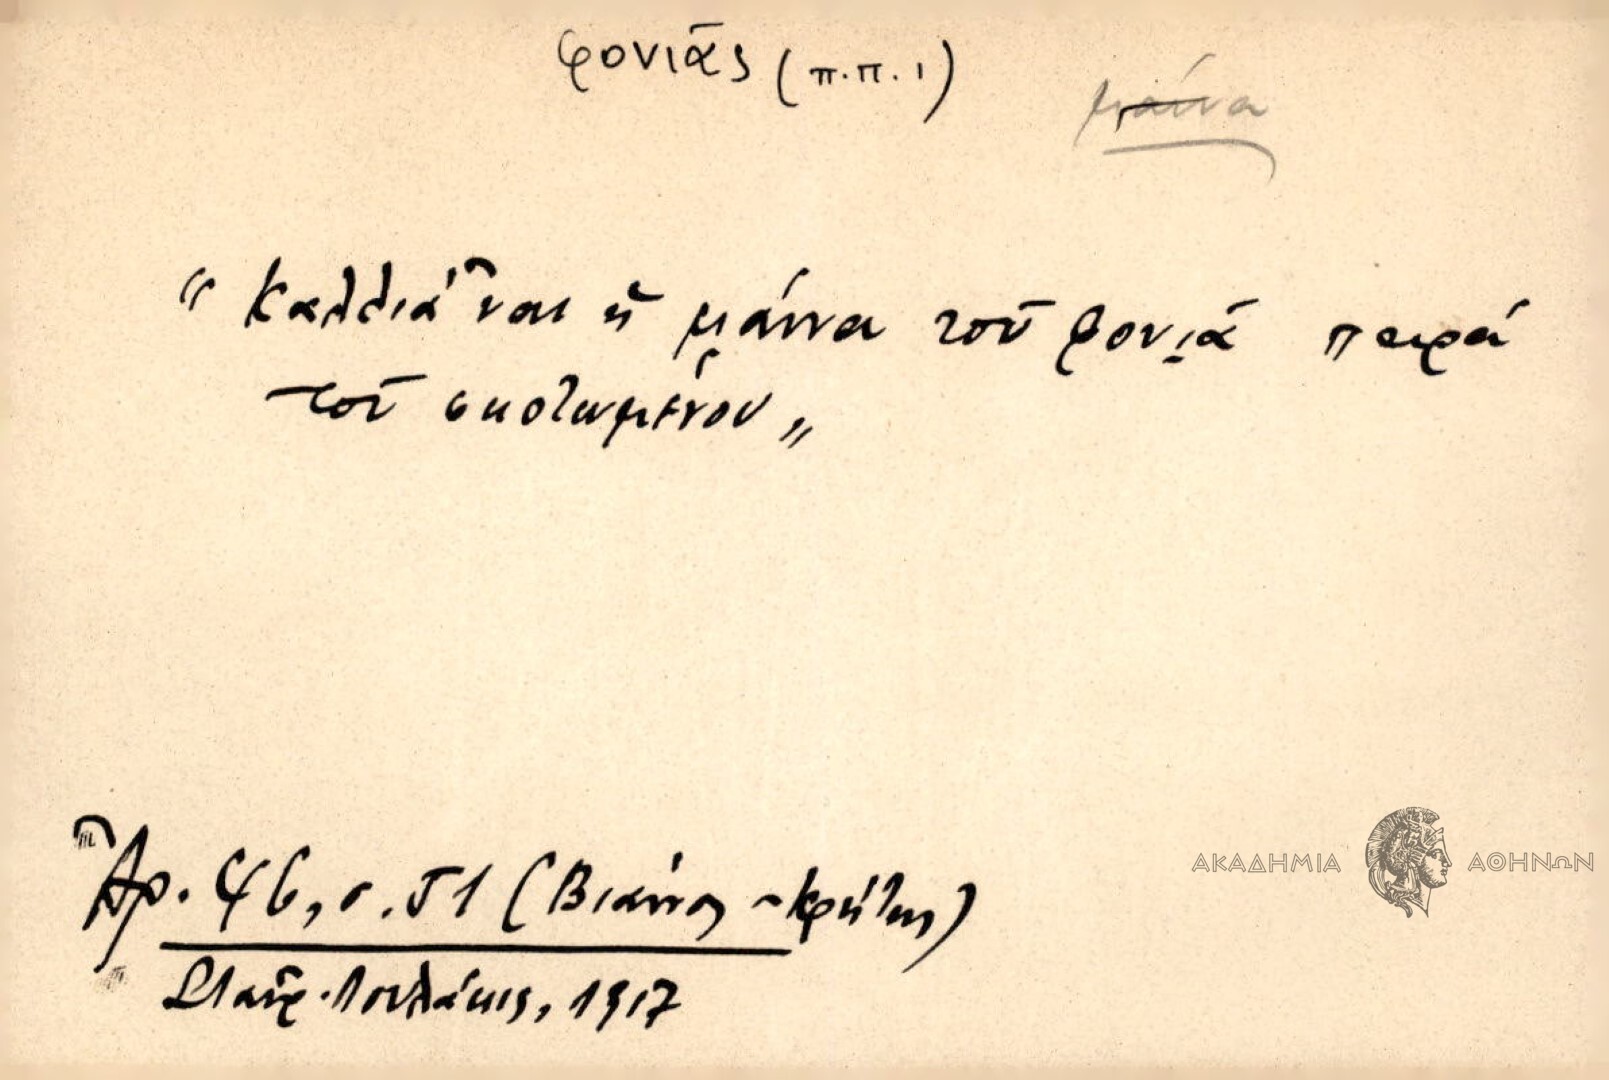 φονιᾶς (π.π. 1)
μάννα
“ Καλλιά 'ναι ἡ μάννα τοῦ φονιᾶ παρά
τοῦ σκοτωμένου „
Ἀρ. 46, σ. 51 (Βιάννος - Κρήτης)
Σταῦρ. 1917
ΑΚΑΔΗΜΙΑ ΑΘΗΝΩΝ